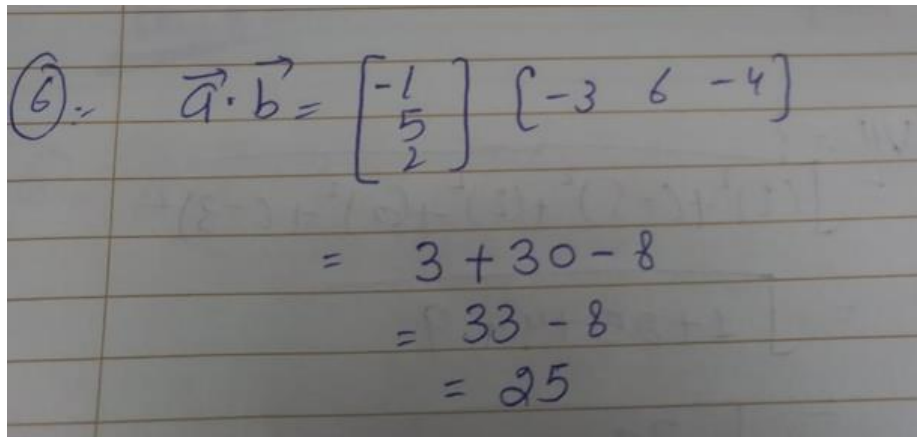 6:- a⃗·b⃗ = [-1 5 2] [-3 6 -4]
= 3 + 30 - 8
= 33 - 8
= 25